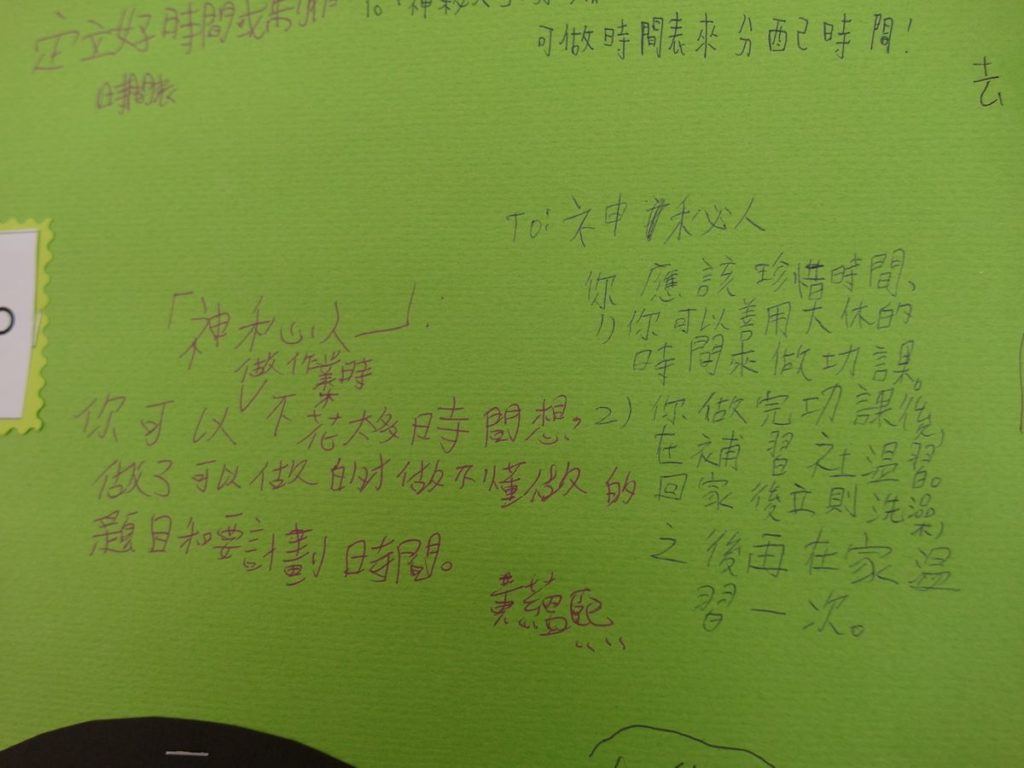 定立好時間或
時間表
To:神秘人
可做時間表來分配己時間！
去
To:神秘人
你應該珍惜時間、
1)你可以善用大休的
時間來做功課。
2)你做完功課後,
在補習社温習。
回家後立則洗澡,
之後再在家温
習一次。
「神秘人」.
做作業時
你可以不花太多時間想,
做了可以做的才做不懂做的
題目和要計劃時間。